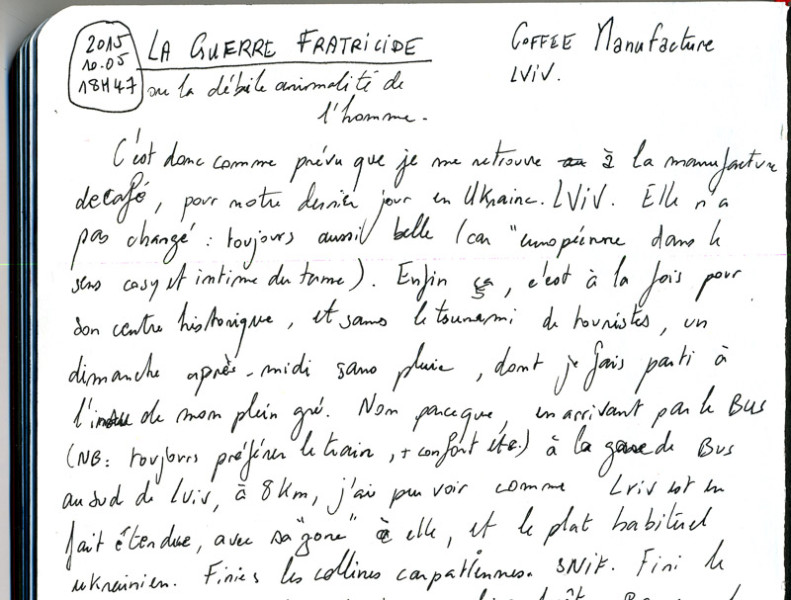 2015
10.05
18H47
LA GUERRE FRATRICIDE
ou la débile animalité de
l'homme.
COFFEE Manufacture
LViV.
C'est donc comme prévu que je me retrouve à la manufacture
de café, pour notre dernier jour en Ukraine. LViV. Elle n'a
pas changé : toujours aussi belle (car "européenne dans le
sens cosy et intime du terme). Enfin ça, c'est à la fois pour
son centre historique, et sans le tsunami de touristes, un
dimanche après-midi sans pluie, dont je fais parti à
l' de mon plein gré. Non parceque, en arrivant par le BUS
(NB : toujours préférer le train, + confort etc.) à la gare de Bus
au sud de Lviv, à 8 Km, j'ai pu voir comme Lviv est en
fait étendue, avec sa "zone" à elle, et le plat habituel
ukrainien. Finies les collines carpatiennes. SNiF. Fini le